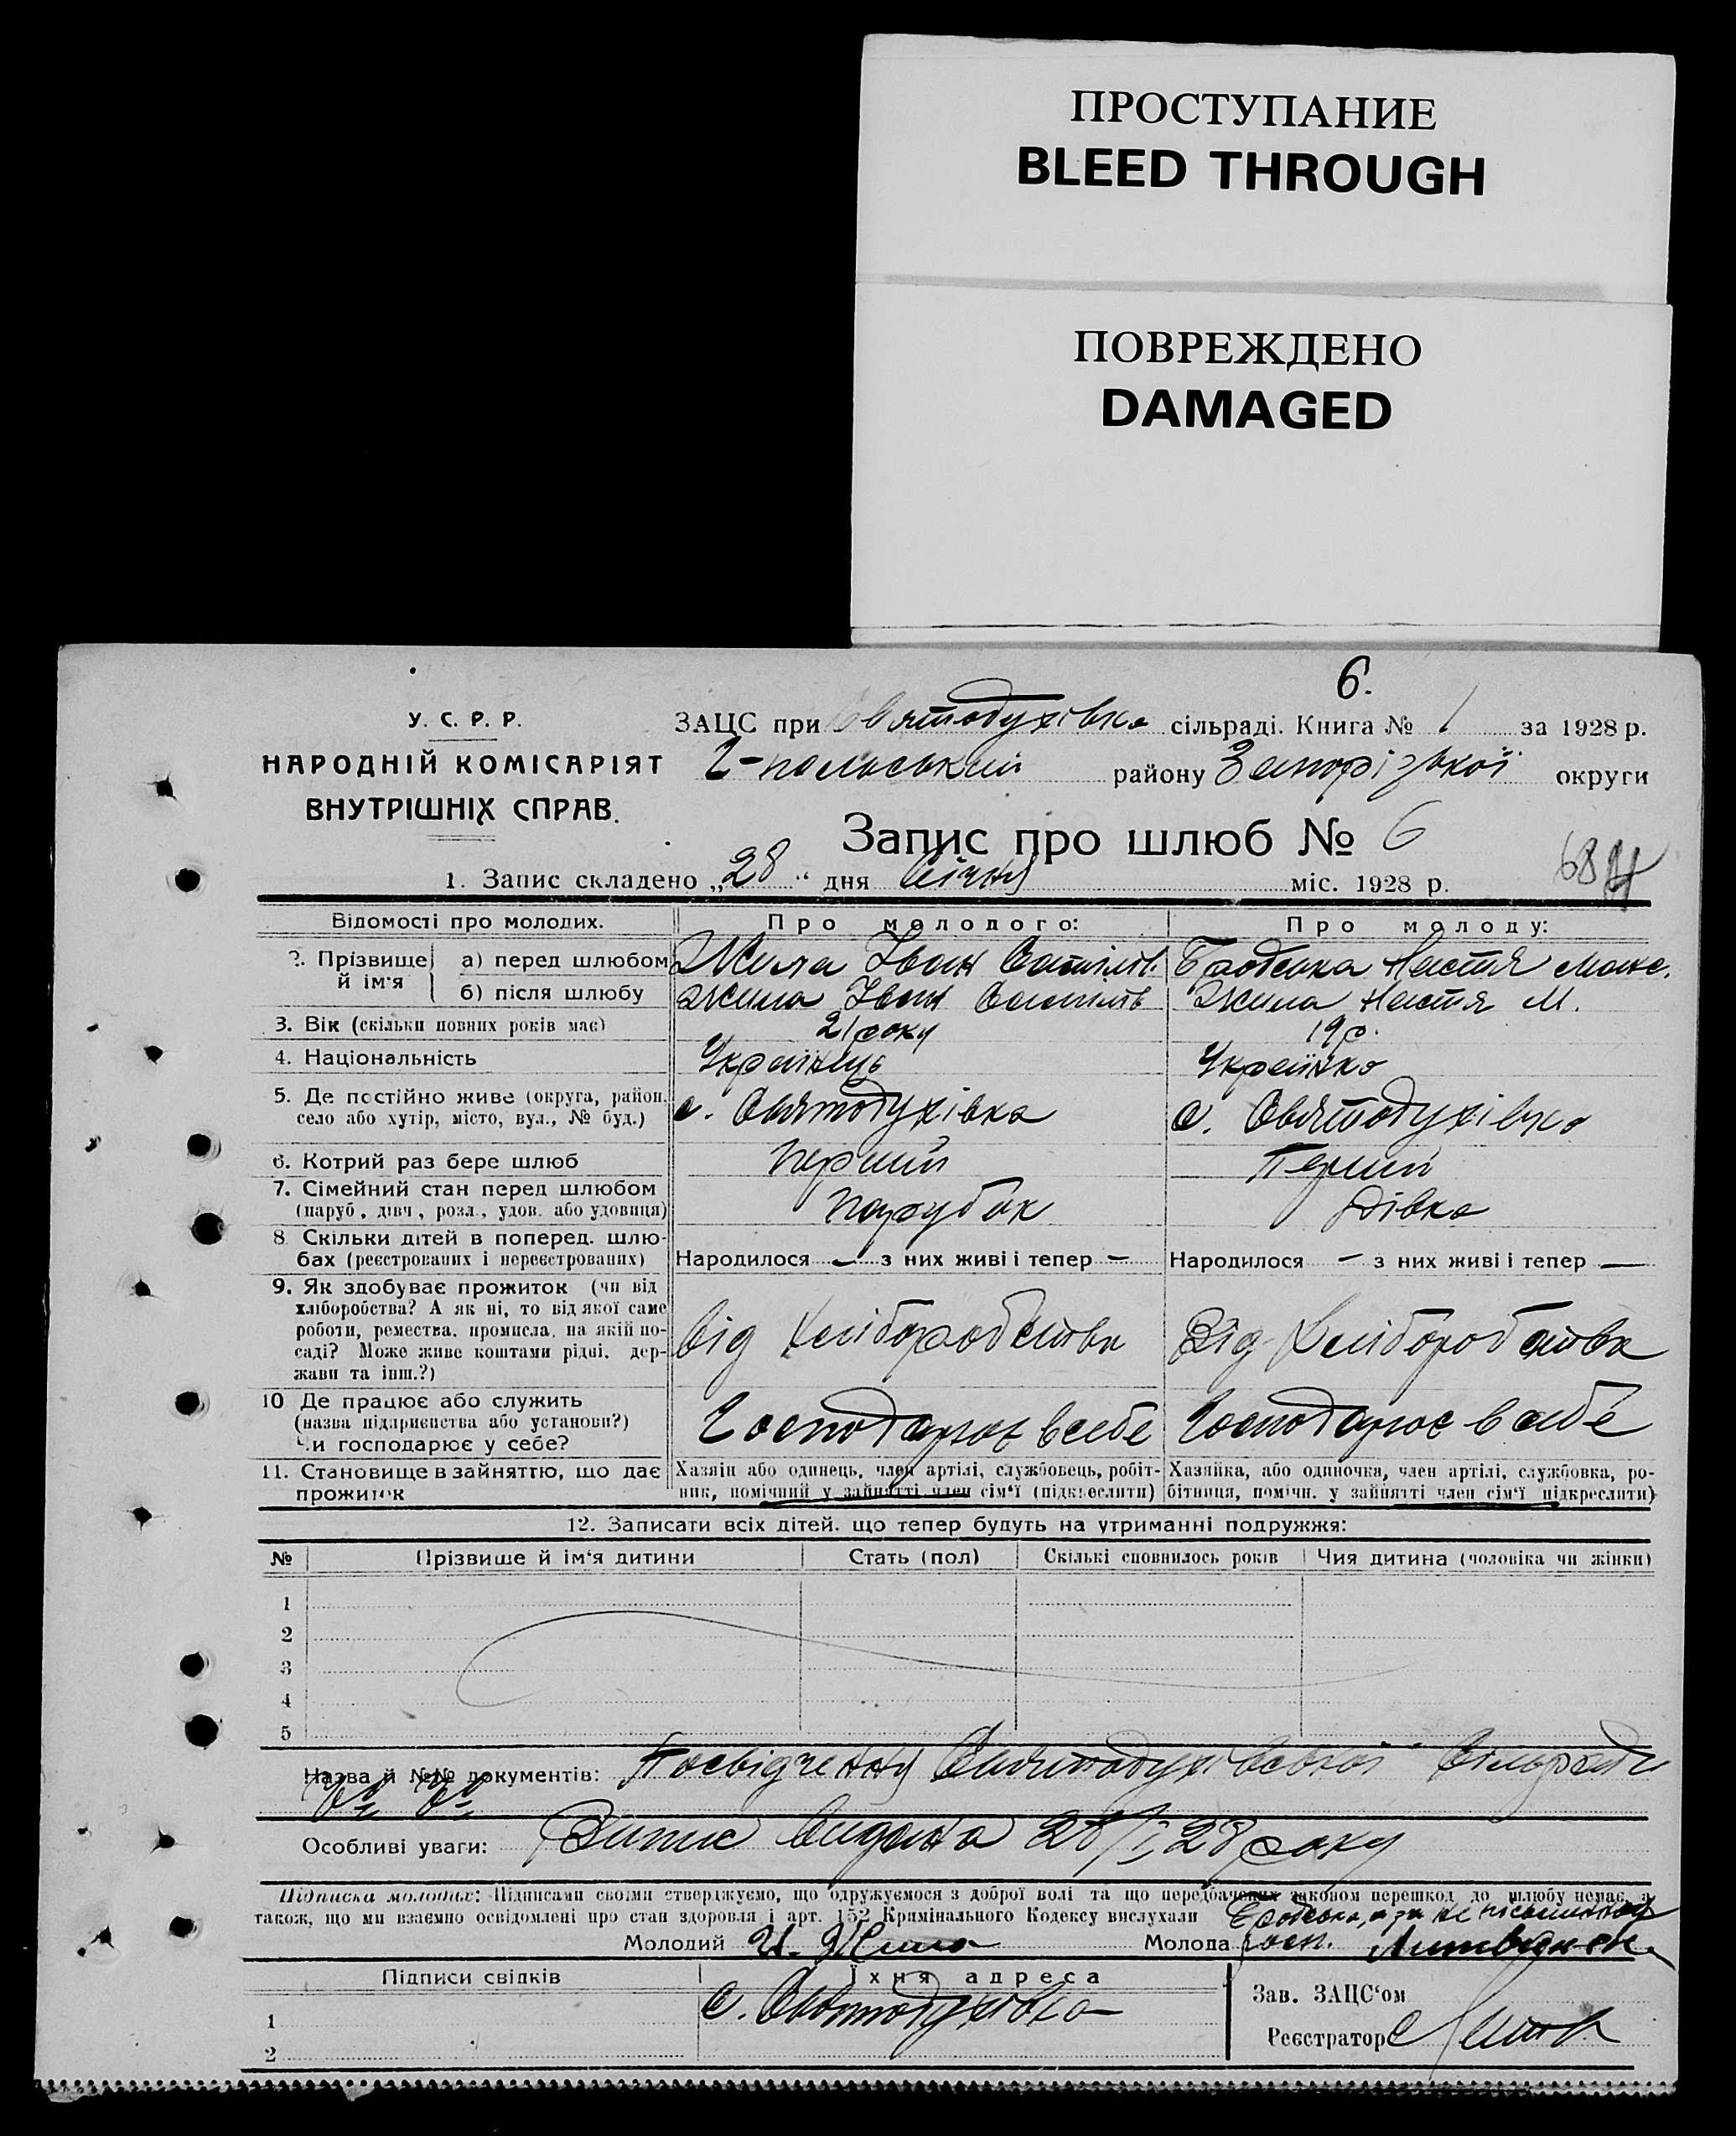 ПРОСТУПАНИЕ
BLEED THROUGH
ПОВРЕЖДЕНО
DAMAGED
6.
У. С. Р. Р.
НАРОДНІЙ КОМІСАРІЯТ
ВНУТРІШНІХ СПРАВ.
ЗАЦС при Святодухівка сільраді. Книга № 1 за 1928 р.
Г-польський району Запорізької округи
Запис про шлюб № 6
1. Запис складено „28“ дня Січня міс. 1928 р.
68
Відомості про молодих. Про молодого: Про молоду:
2. Прізвище й ім'я а) перед шлюбом Жила Іван Настя Макс.
б) після шлюбу Жила Іван Жила Настя М.
3. Вік (скільки повних років має) 21 року 19 р.
4. Національність Українець Українка
5. Де постійно живе (округа, район, село або хутір, місто, вул., № буд.) с. Святодухівка с. Святодухівка
6. Котрий раз бере шлюб перший Перший
7. Сімейний стан перед шлюбом (паруб., дівч., розл., удов. або удовиця) парубок дівка
8. Скільки дітей в поперед. шлюбах (реєстрованих і нереєстрованих) Народилося — з них живі і тепер — Народилося — з них живі і тепер —
9. Як здобуває прожиток (чи від хліборобства? А як ні, то від якої саме роботи, ремества, промисла, на якій посаді? Може живе коштами рідні, держави та інш.?) Від Хліборобства Від Хліборобства
10 Де працює або служить (назва підприємства або установи?) Чи господарює у себе? Господарює в себе Господарює в себе
11. Становище в зайняттю, що дає прожиток Хазяїн або одинець, член артілі, службовець, робітник, помічний у зайнятті член сім'ї (підкреслити) Хазяйка, або одиночка, член артілі, службовка, робітниця, помічн. у зайнятті член сім'ї підкреслити)
12. Записати всіх дітей, що тепер будуть на утриманні подружжя:
№ Прізвище й ім'я дитини Стать (пол) Скількі сповнилось років Чия дитина (чоловіка чи жінки)
1
2
3
4
5
Назва й №№ документів: Посвідчення Святодухівської Сільради
Особливі уваги: Випис видана 28/I 28 року
Підписка молодих: Підписами своїми стверджуємо, що одружуємося з доброї волі та що передбачених законом перешкод до шлюбу немає, а
також, що ми взаємно освідомлені про стан здоровля і арт. 152 Кримінального Кодексу вислухали
Молодий И. Жила Молода
Підписи свідків Їхня адреса
с. Святодухівка
Зав. ЗАЦС'ом
1
Реєстратор
2